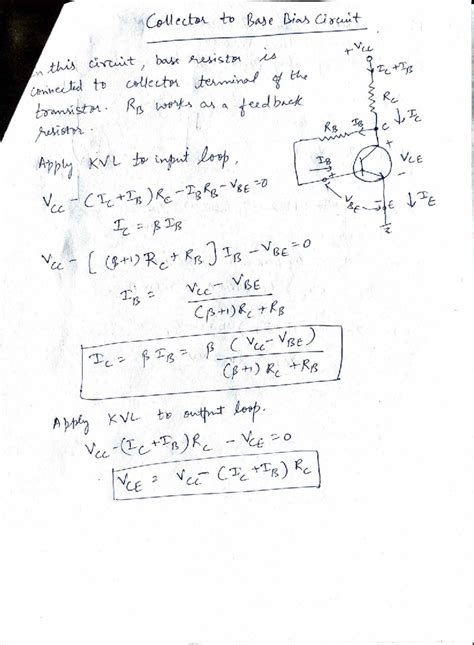 Collector to Base Bias Circuit
In this circuit, base resistor is
connected to collector terminal of the
transistor. R_B works as a feedback
resistor.
+V_CC
I_C+I_B
R_C
I_C
R_B
I_B
C
+
I_B
V_CE
-
V_BE
E
I_E
Apply KVL to input loop.
V_CC - (I_C+I_B)R_C - I_B R_B - V_BE = 0
I_C = β I_B
V_CC - [(β+1)R_C + R_B] I_B - V_BE = 0
I_B = (V_CC - V_BE) / ((β+1)R_C + R_B)
I_C = β I_B = β (V_CC - V_BE) / ((β+1) R_C + R_B)
Apply KVL to output loop.
V_CC - (I_C + I_B) R_C - V_CE = 0
V_CE = V_CC - (I_C + I_B) R_C